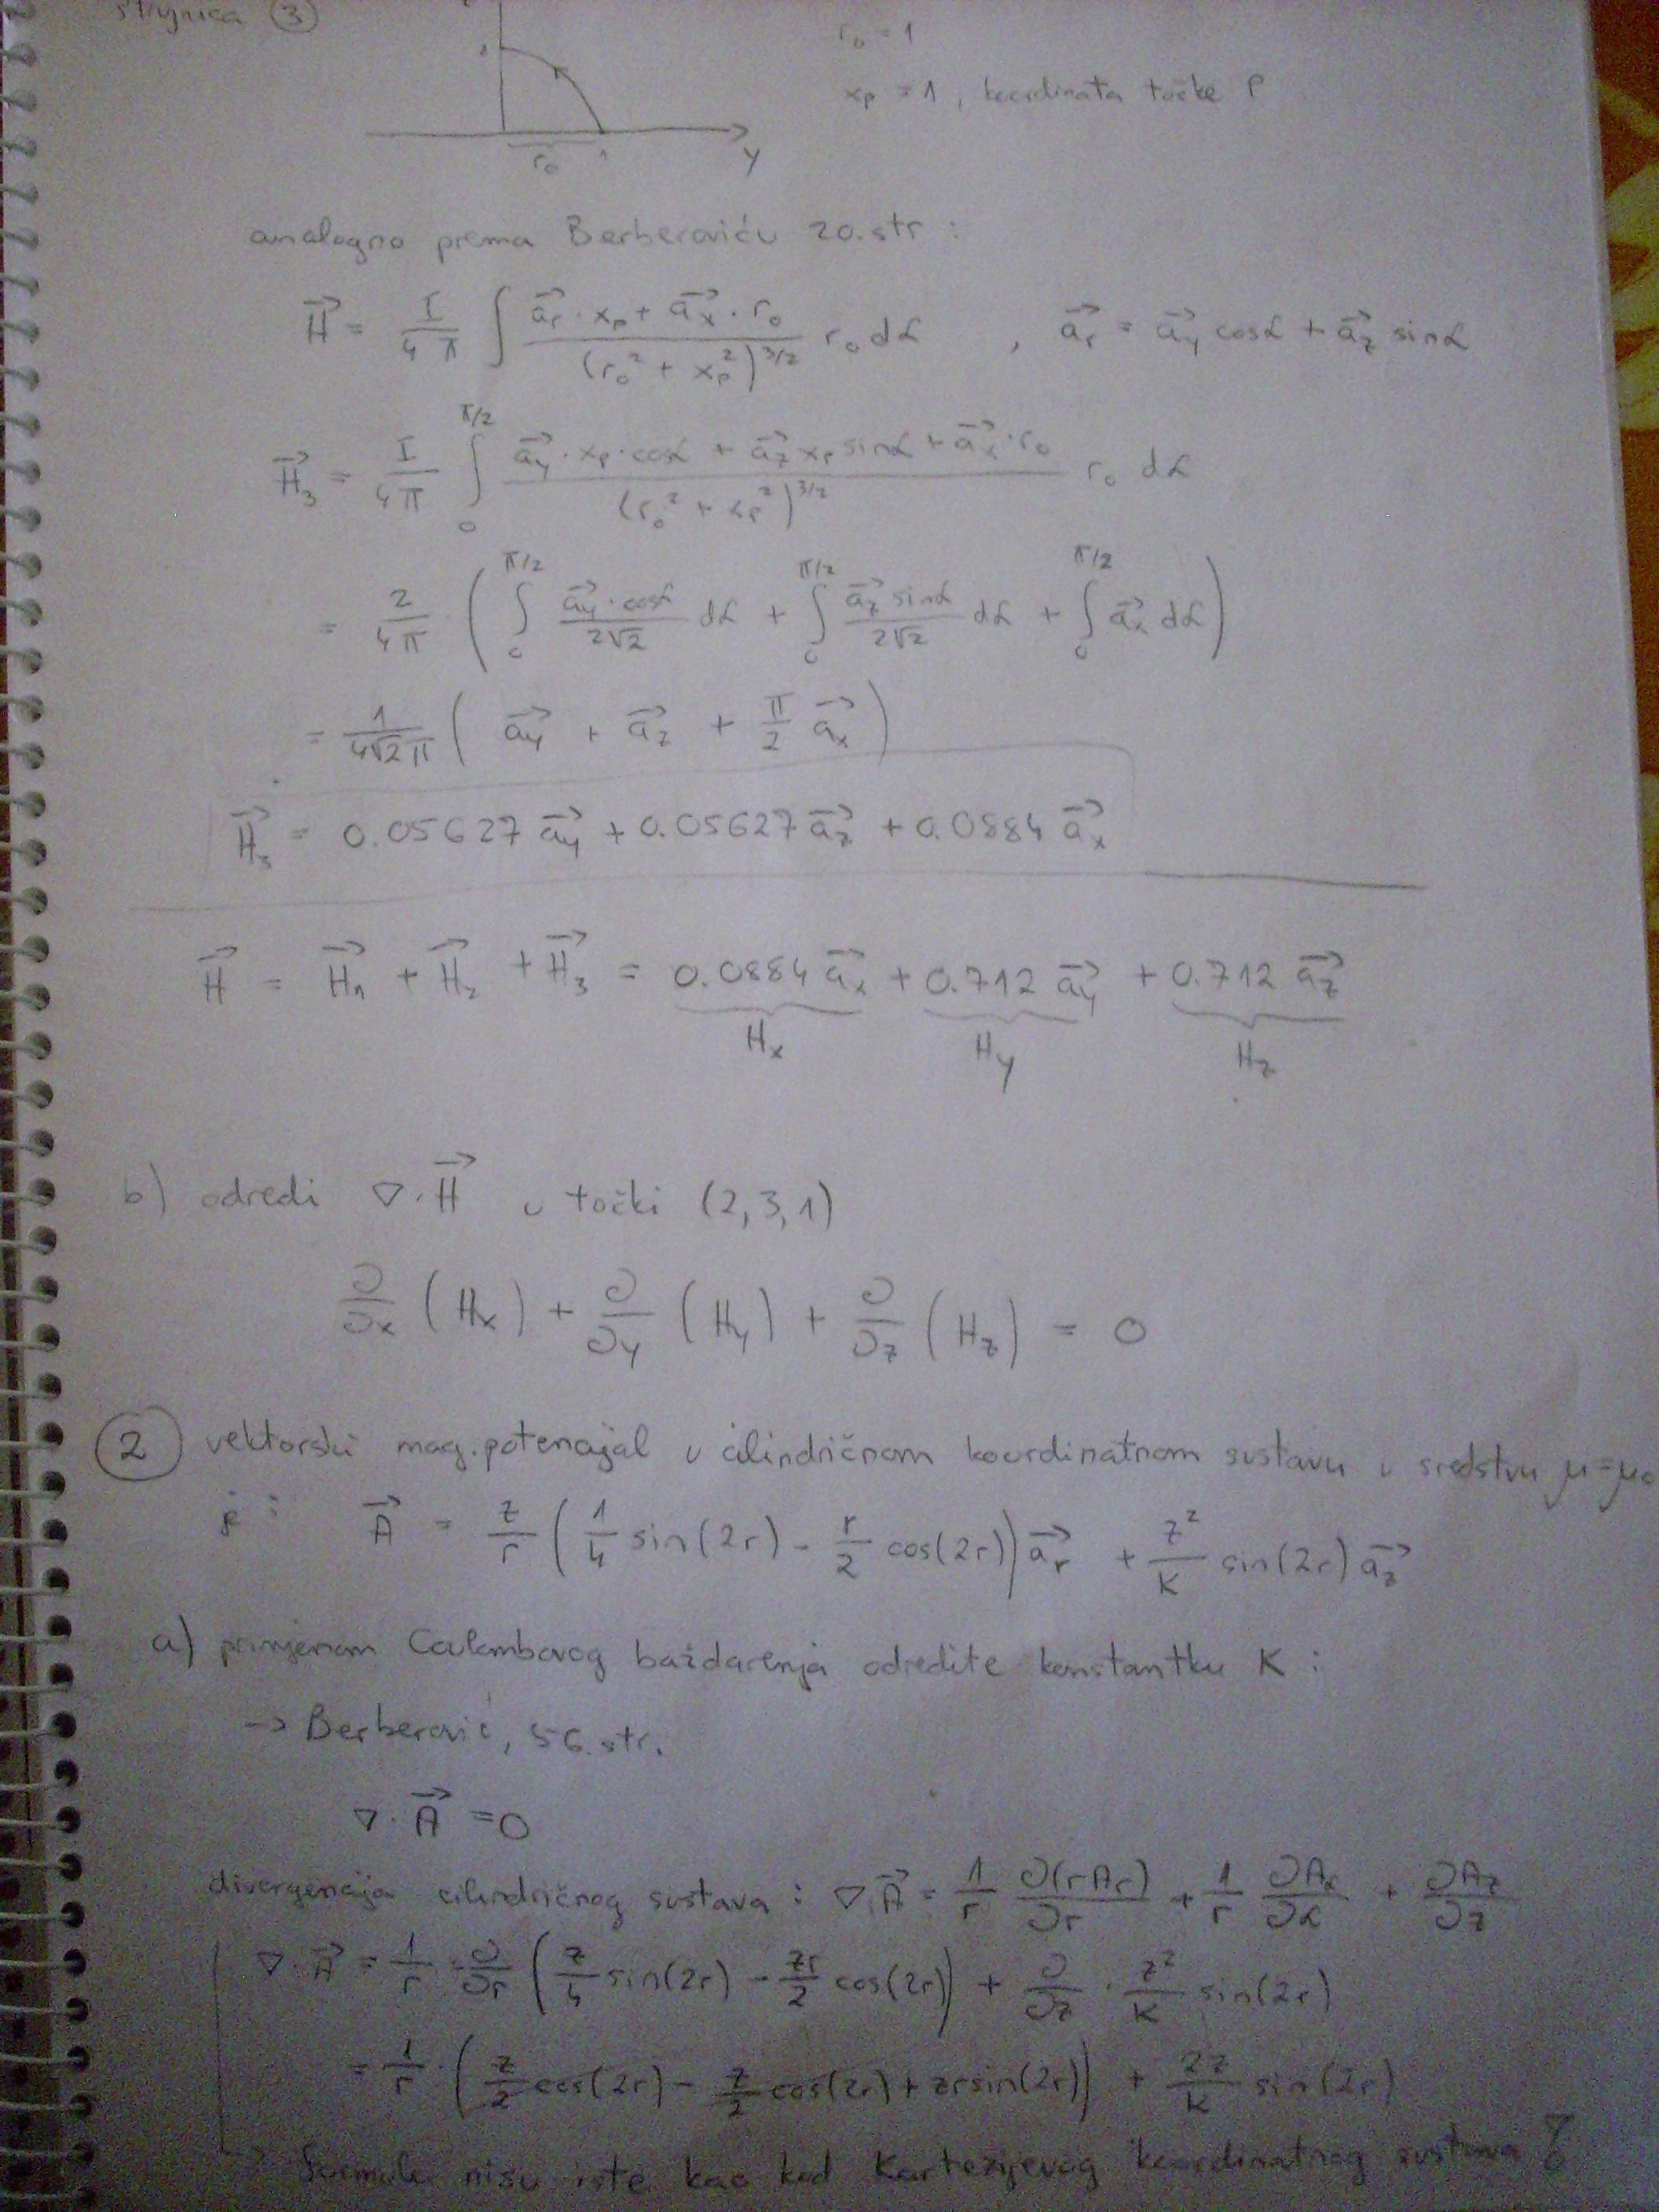 strujnica ③
r₀ = 1
xₚ = 1, koordinata točke P
1
r₀ 1 y
analogno prema Berberoviću 20.str :
H⃗ = I/(4π) ∫ (a⃗ᵣ·xₚ + a⃗ₓ·r₀)/(r₀² + xₚ²)^(3/2) r₀ dα , a⃗ᵣ = a⃗_y cosα + a⃗_z sinα
H⃗₃ = I/(4π) ∫₀^(π/2) (a⃗_y·xₚ·cosα + a⃗_z xₚ sinα + a⃗ₓ·r₀)/(r₀² + xₚ²)^(3/2) r₀ dα
= 2/(4π) · ( ∫₀^(π/2) (a⃗_y·cosα)/(2√2) dα + ∫₀^(π/2) (a⃗_z sinα)/(2√2) dα + ∫₀^(π/2) a⃗ₓ dα )
= 1/(4√2π) ( a⃗_y + a⃗_z + π/2 a⃗ₓ )
H⃗₃ = 0.05627 a⃗_y + 0.05627 a⃗_z + 0.0884 a⃗ₓ
H⃗ = H⃗₁ + H⃗₂ + H⃗₃ = 0.0884 a⃗ₓ + 0.712 a⃗_y + 0.712 a⃗_z
Hₓ H_y H_z
b) odredi ∇·H⃗ u točki (2,3,1)
∂/∂x (Hₓ) + ∂/∂y (H_y) + ∂/∂z (H_z) = 0
② vektorski mag.potencijal u cilindričnom koordinatnom sustavu u sredstvu μ=μ₀
je : A⃗ = z/r (1/4 sin(2r) - r/2 cos(2r)) a⃗ᵣ + z²/K sin(2r) a⃗_z
a) primjenom Coulombovog baždarenja odredite konstantku K :
→ Berberović, 56.str.
∇·A⃗ = 0
divergencija cilindričnog sustava : ∇·A⃗ = 1/r ∂(rAᵣ)/∂r + 1/r ∂A_α/∂α + ∂A_z/∂z
∇·A⃗ = 1/r · ∂/∂r (z/4 sin(2r) - zr/2 cos(2r)) + ∂/∂z · z²/K sin(2r)
= 1/r · (z/2 cos(2r) - z/2 cos(2r) + zr sin(2r)) + 2z/K sin(2r)
→ formule nisu iste kao kod Kartezijevog koordinatnog sustava !